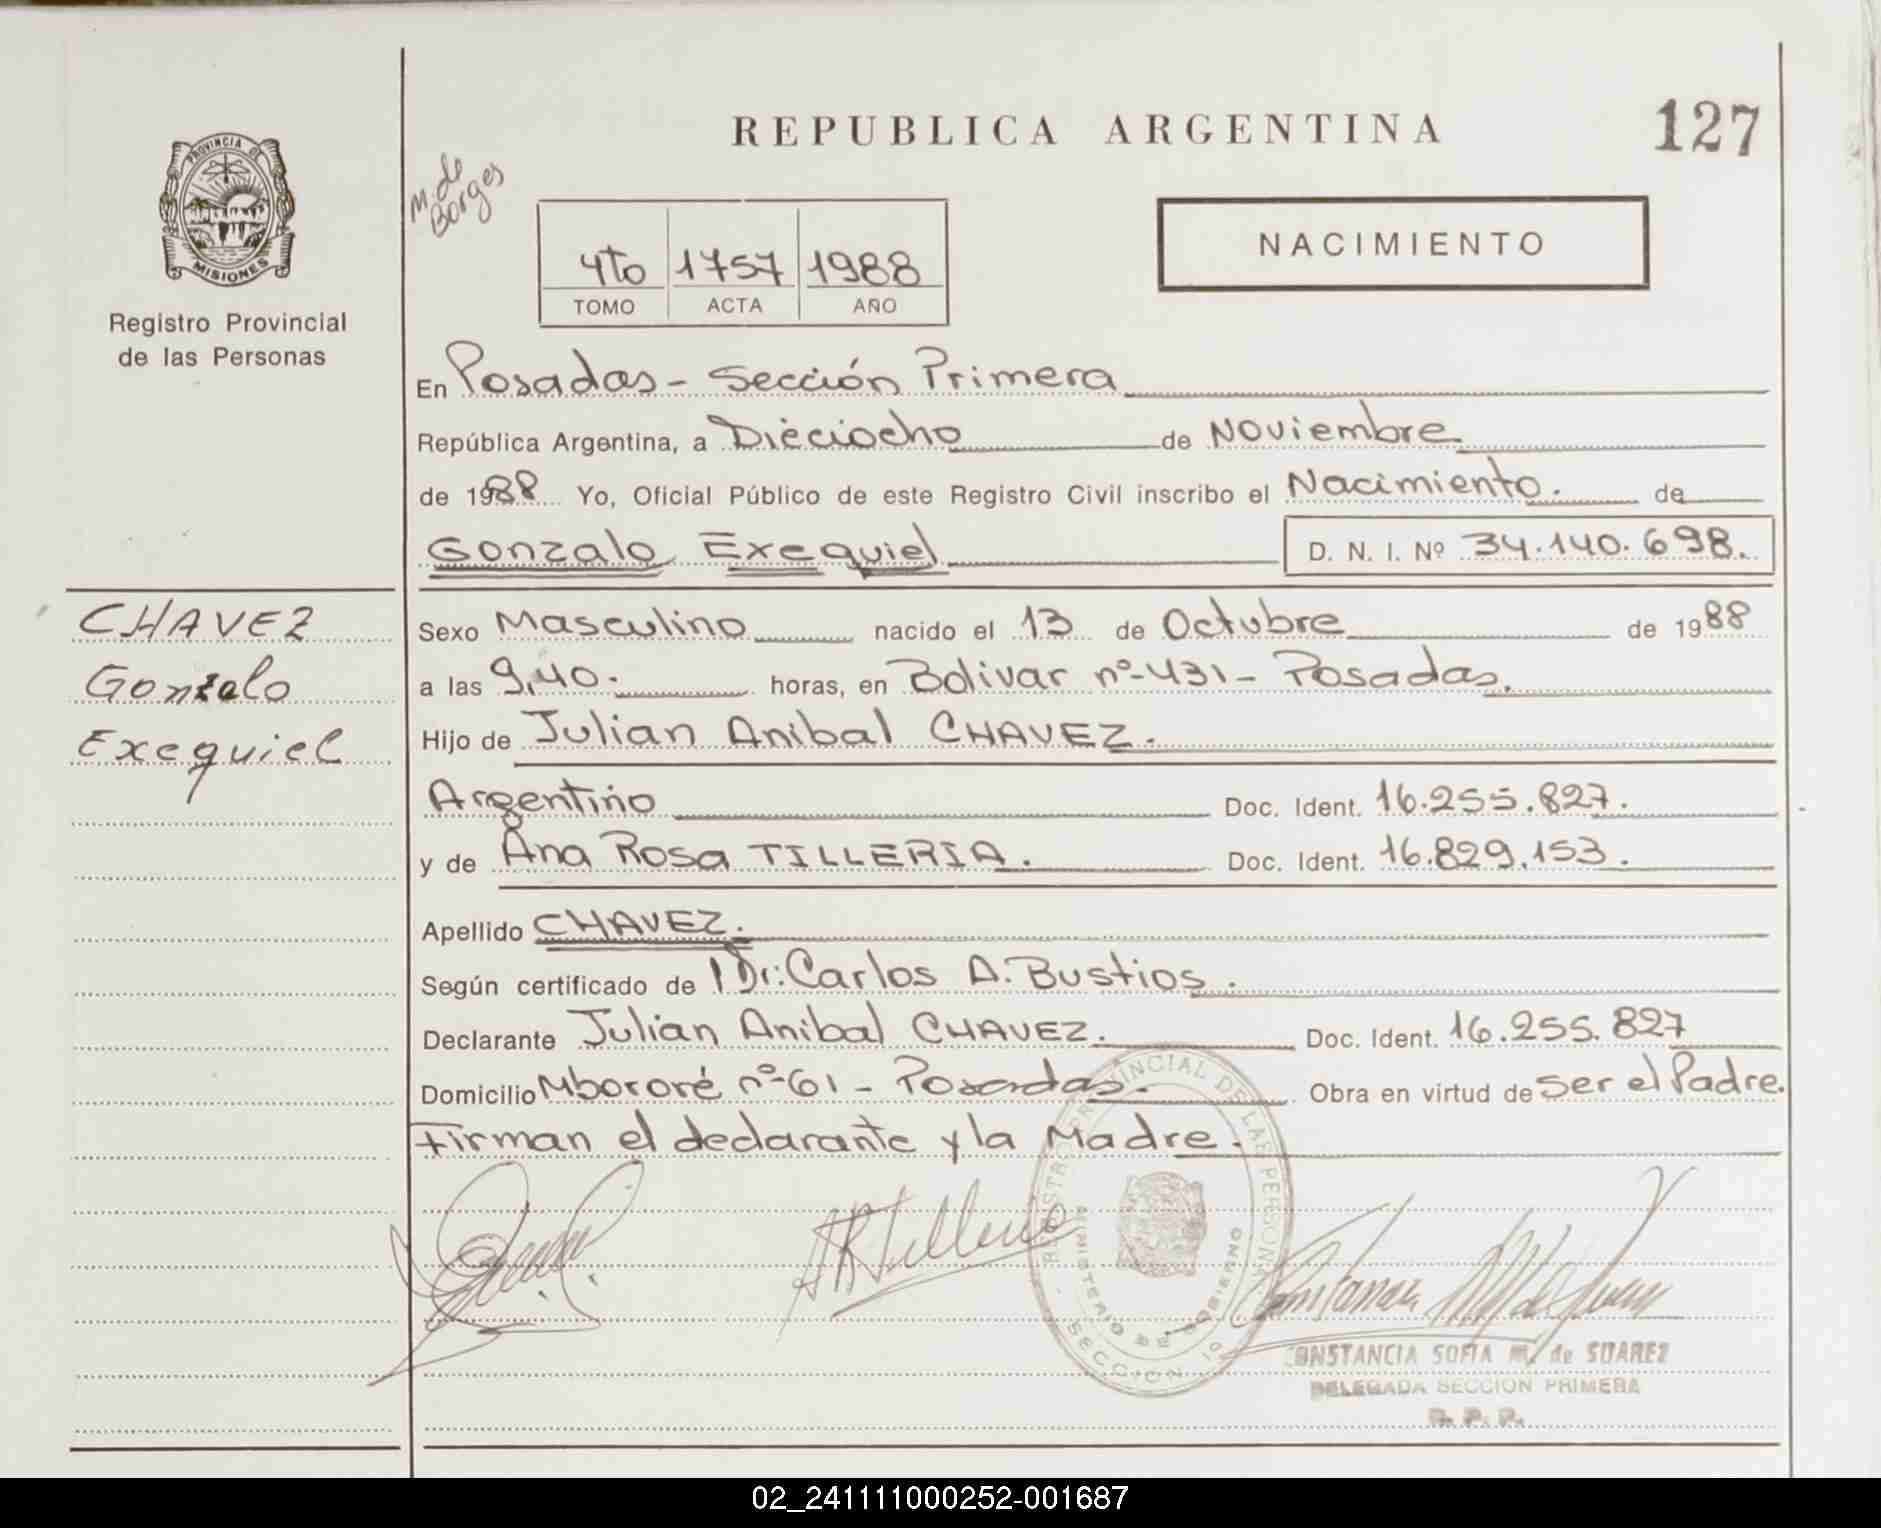 REPUBLICA ARGENTINA
127
PROVINCIA DE
MISIONES
Registro Provincial
de las Personas
M. de
Borges
4to 1757 1988
TOMO ACTA AÑO
NACIMIENTO
En Posadas - Sección Primera
República Argentina, a Dieciocho de Noviembre
de 1988 Yo, Oficial Público de este Registro Civil inscribo el Nacimiento. de
Gonzalo Exequiel D. N. I. Nº 34.140.698.
CHAVEZ
Gonzalo
Exequiel
Sexo Masculino nacido el 13 de Octubre de 1988
a las 9,40. horas, en Bolivar nº 431 - Posadas.
Hijo de Julian Anibal CHAVEZ.
Argentino Doc. Ident. 16.255.827.
y de Ana Rosa TILLERIA. Doc. Ident. 16.829.153.
Apellido CHAVEZ.
Según certificado de Dr: Carlos A. Bustios.
Declarante Julian Anibal CHAVEZ. Doc. Ident. 16.255.827
Domicilio Mbororé nº 61 - Posadas. Obra en virtud de Ser el Padre.
Firman el declarante y la Madre.
REGISTRO PROVINCIAL DE LAS PERSONAS
MINISTERIO DE GOBIERNO
SECCION 1º
ARTilleria
CONSTANCIA SOFIA M. de SUAREZ
DELEGADA SECCION PRIMERA
R. P. P.
02_241111000252-001687